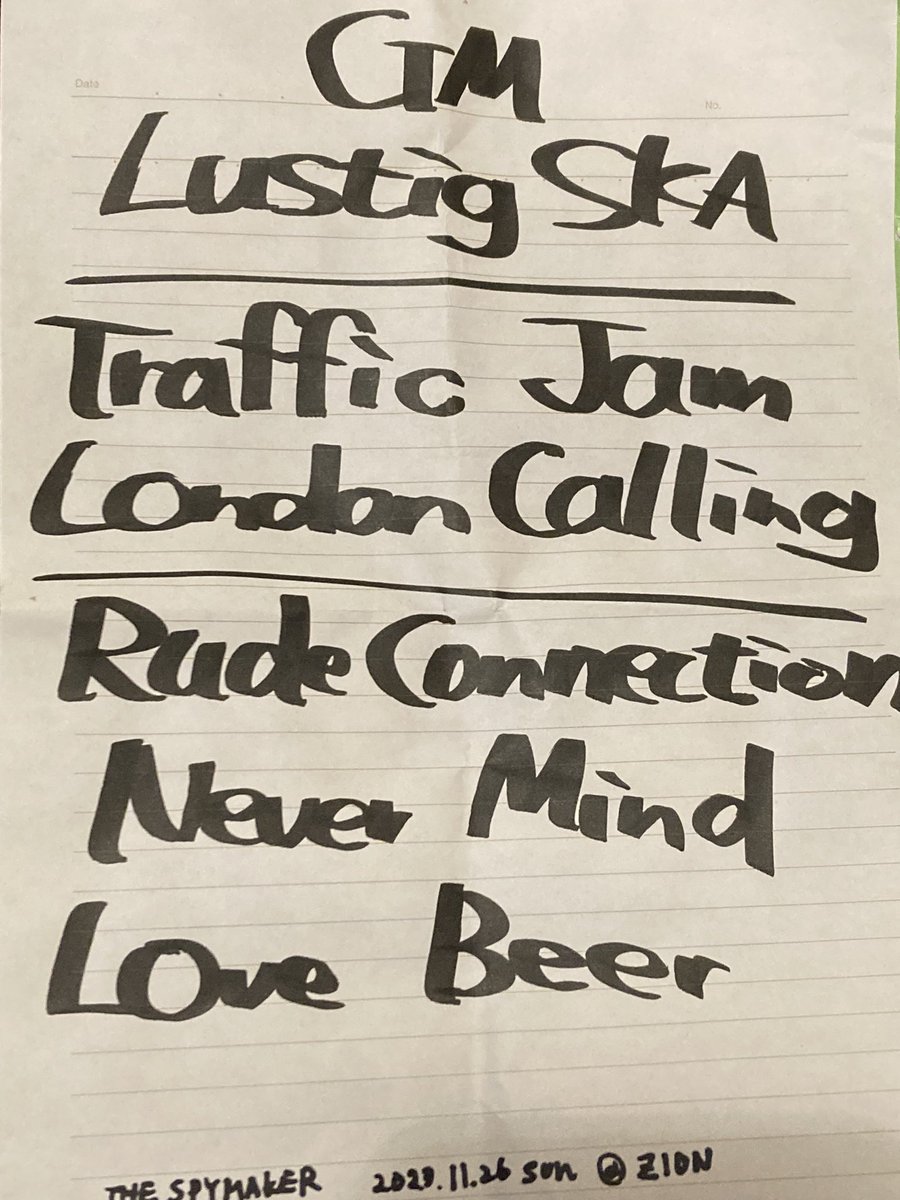 GM
Date
No.
Lustig SKA
Traffic Jam
London Calling
Rude Connection
Never Mind
Love Beer
THE SPYMAKER 2023.11.26 sun @ ZION